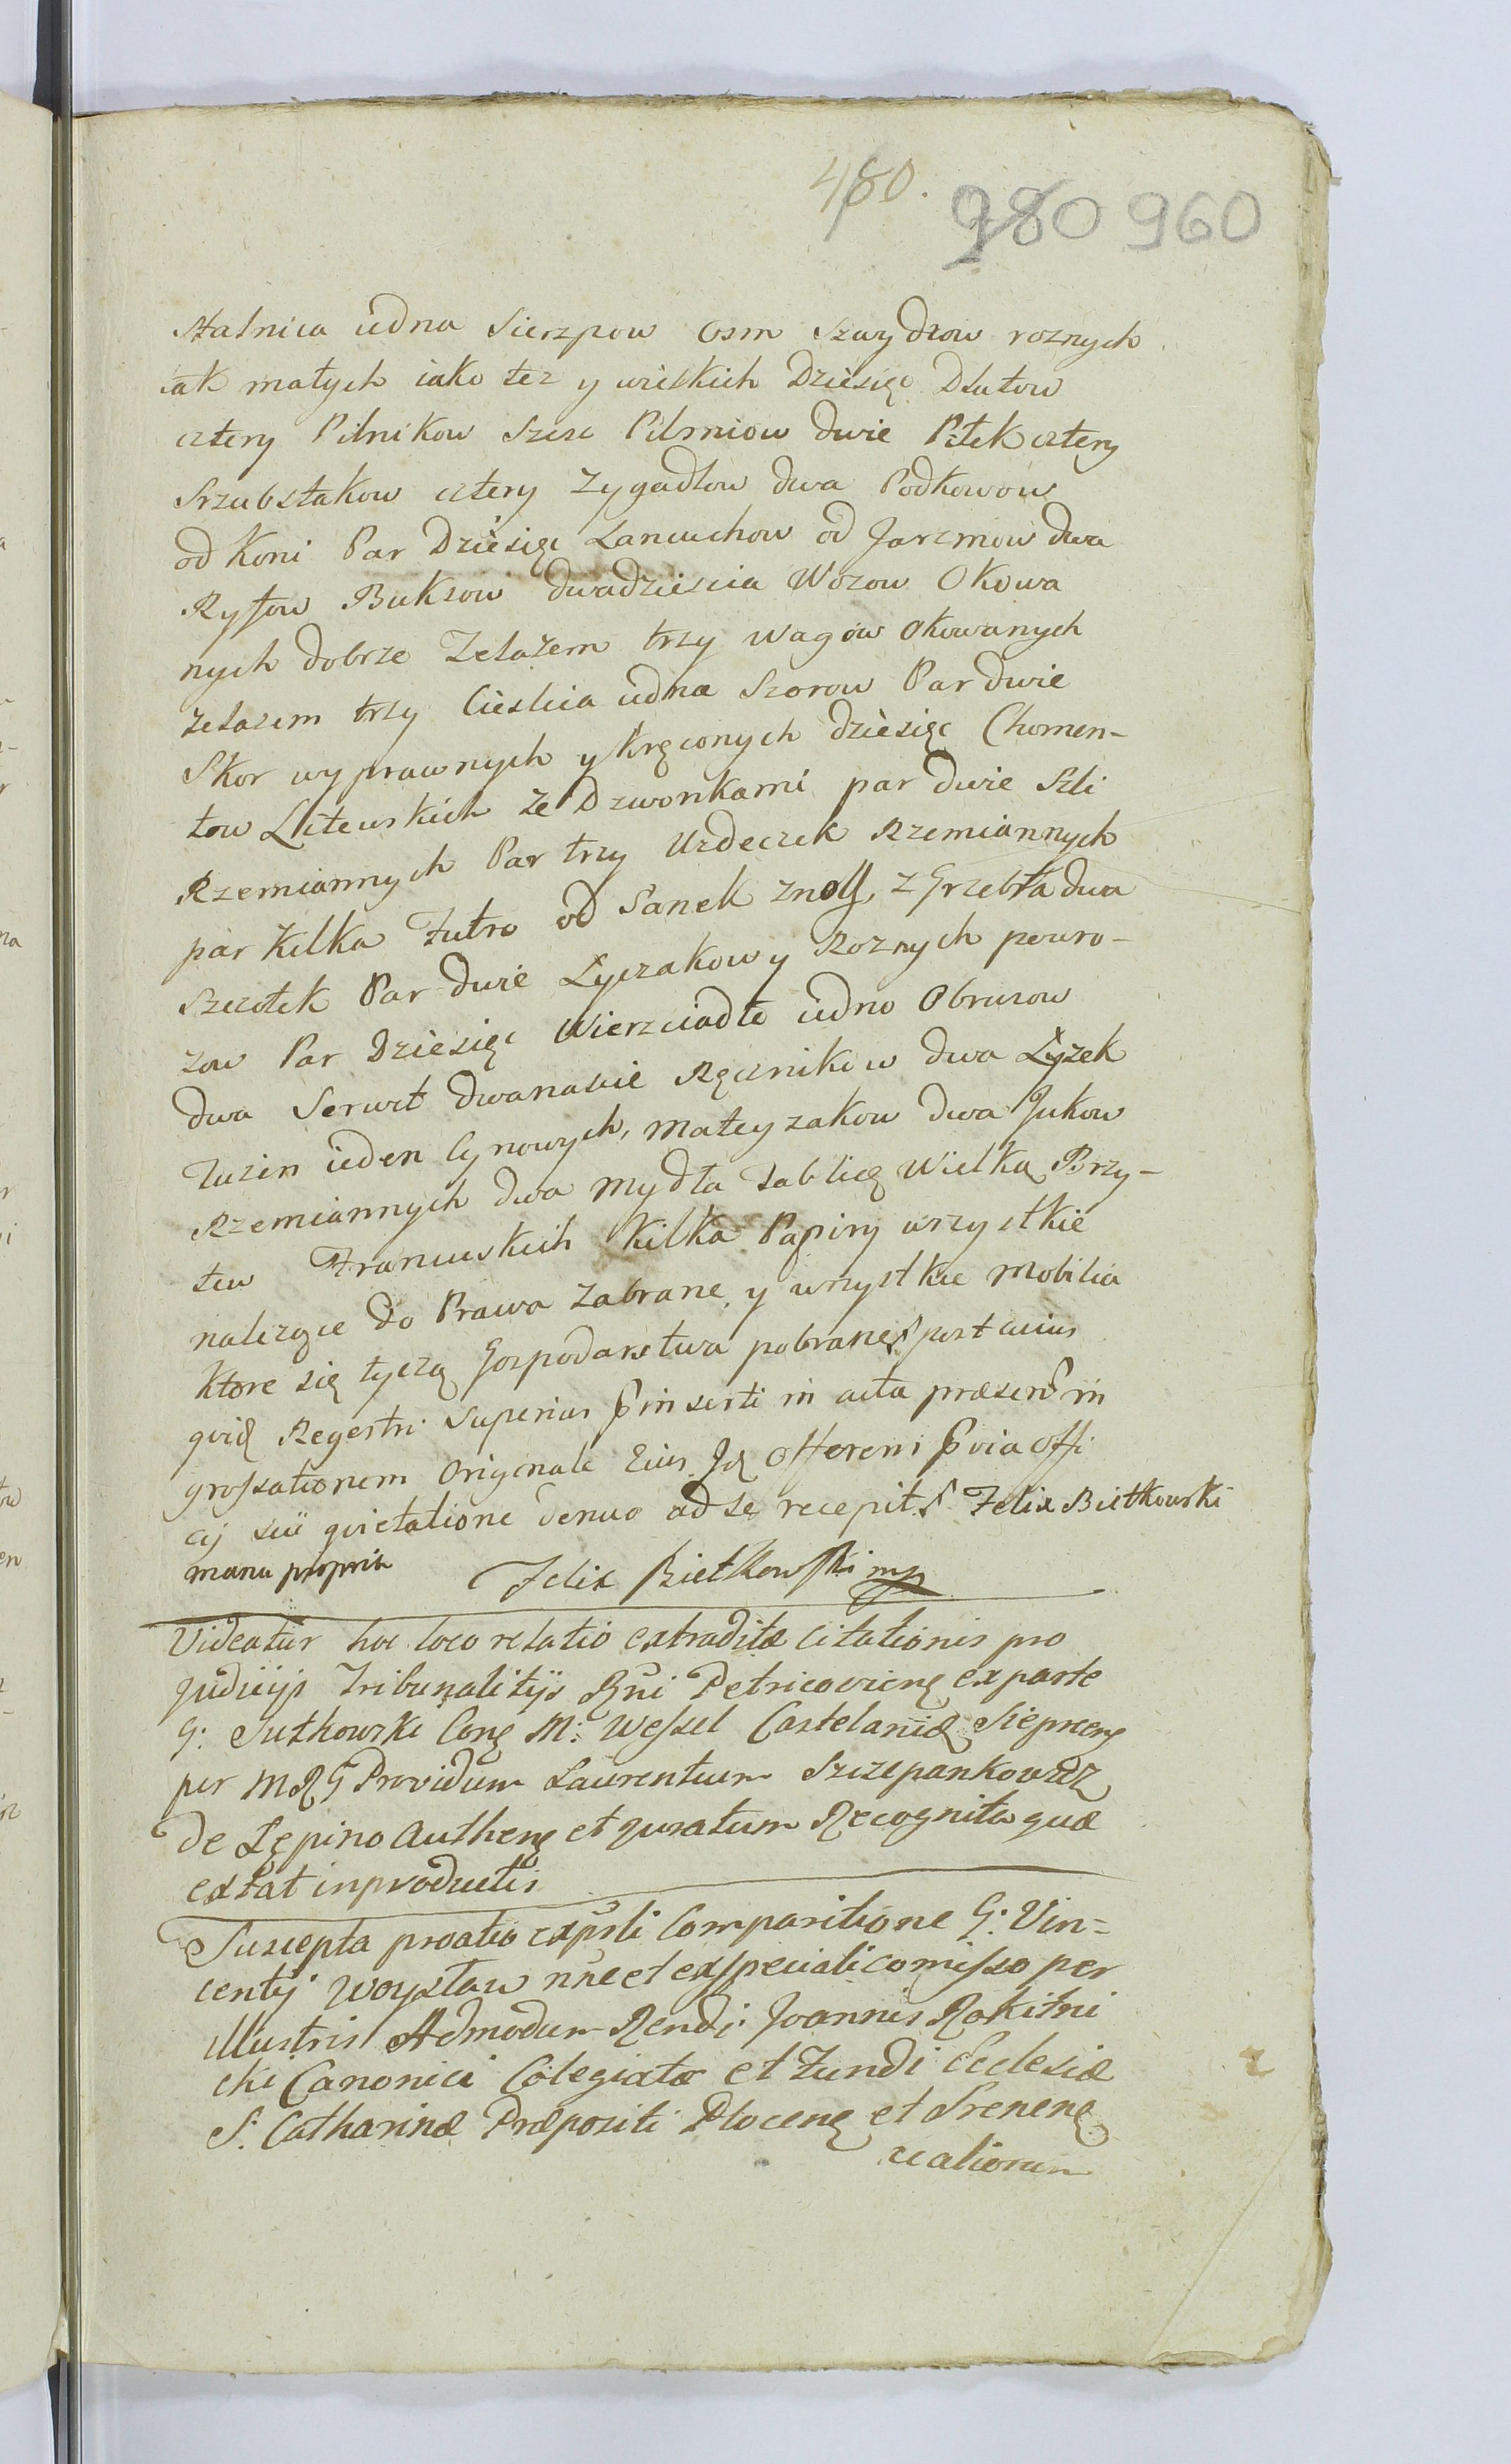 480. 980 960
stalnica iedna Sierzpow Osm Szwydrow roznych
iak małych iako tez y wielkich Dziesięc Dłutow
cztery Pilnikow Szesc Pilrniow dwie Piłek cztery
Srzubsztakow cztery Zygadłow dwa Podkowow
od Koni Par Dziesięc Lancuchow od Jarzmow dwa
Ryfow Buksow dwadziescia Wozow Okowa
nych dobrze Zelazem trzy wagow okowanych
zelazem trzy Cieslica iedna Szorow Par dwie
Skor wyprawnych y kręconych dziesięc Chomen-
tow Litewskich ze Dzwonkami par dwie Szli
Rzemiannych Par trzy Uzdeczek Rzemiannych
par Kilka Futro od Sanek z Grzebła dwa
Szczotek Par dwie Łyczakow y Roznych powro-
zow Par Dziesięc Wierzciadło iedno Obrusow
dwa Serwet dwanascie Ręcznikow dwa Łyzek
Tuzin ieden Cynowych, Mateyzakow dwa Jukow
Rzemiannych dwa mydła Tablicę Wielką Brzy-
tew Francuskich kilka Papiry wszystkie
nalezące do Prawa zabrane y wszystkie Mobilia
ktore się tyczą Gospodarstwa pobrane post cuius
quid Regestri Superius inserti in acta præsen in
grossationem Originale Eius Id Offerens via offi
cij sui quietatione denuo ad se recepit Felix Bietkowski
manu propria Felix Bietkowski mp
Videatur hoc loco relatio extraditæ Citationis pro
Judicijs Tribunalitijs Rni Petricovien ex parte
G: Sutkowski Con M: Wessel Castelaniæ Sieprcen
per MRG Providum Laurentium Szczepankowicz
de Lępino Authen et Juratum Recognita quæ
extat in productis
Suscepta protio expsti Comparitione G: Vin=
centij Woysław nne et ex speciali comisso per
Illustris Admodum Rendi Joannis Rokitni
cki Canonici Colegiatæ et Fundi Ecclesiæ
S: Catharinæ Præpositi Plocen et Srenen
ucaliorum